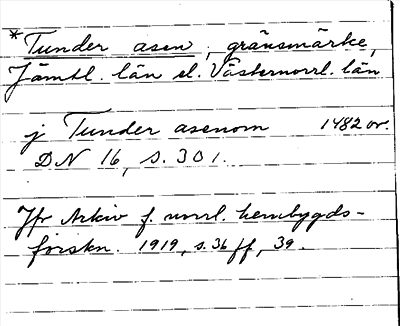 *Tunder asen, gränsmärke,
Jämtl. län el. Västernorrl. län
j Tunder asenom 1482 or.
DN 16, s. 301.
Jfr Arkiv f. norrl. hembygds-
forskn. 1919, s. 36 ff, 39.